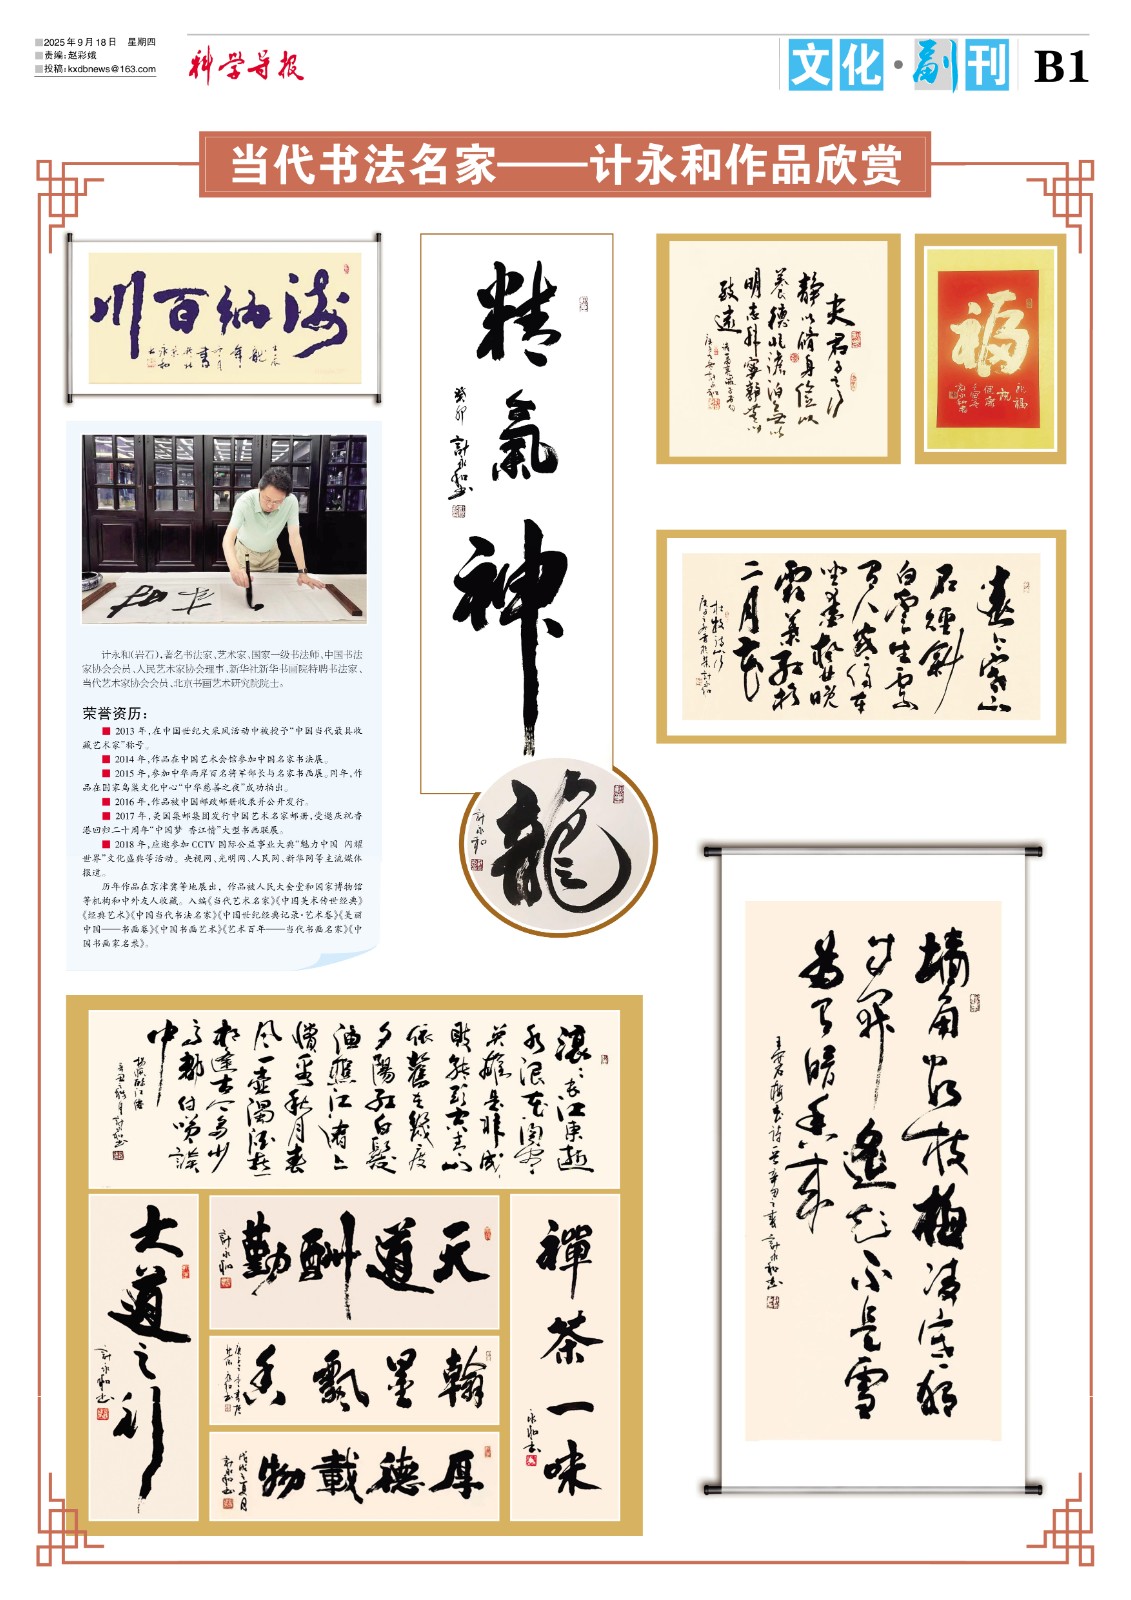 2025年9月18日 星期四
责编:赵彩娥
投稿:kxdbnews@163.com
科学导报
文化·副刊 B1
当代书法名家——计永和作品欣赏
海纳百川
壬辰
龙年
计永和
精氣神
癸卯
計永和书
夫君子之行
静以修身俭以
养德非澹泊无以
明志非寧静无以
致遠
福
遠上寒山
石径斜
白雲生处
有人家停車
坐爱楓林晚
霜葉红於
二月花
杜牧诗山行
計永和
计永和(岩石),著名书法家、艺术家、国家一级书法师、中国书法
家协会会员、人民艺术家协会理事、新华社新华书画院特聘书法家、
当代艺术家协会会员、北京书画艺术研究院院士。
荣誉资历:
2013年,在中国世纪大采风活动中被授予“中国当代最具收
藏艺术家”称号。
2014年,作品在中国艺术会馆参加中国名家书法展。
2015年,参加中华两岸百名将军部长与名家书画展。同年,作
品在国家鸟巢文化中心“中华慈善之夜”成功拍出。
2016年,作品被中国邮政邮册收录并公开发行。
2017年,美国集邮集团发行中国艺术名家邮册,受邀庆祝香
港回归二十周年“中国梦 香江情”大型书画联展。
2018年,应邀参加CCTV国际公益事业大典“魅力中国 闪耀
世界”文化盛典等活动。央视网、光明网、人民网、新华网等主流媒体
报道。
历年作品在京津冀等地展出,作品被人民大会堂和国家博物馆
等机构和中外友人收藏。入编《当代艺术名家》《中国美术传世经典》
《经典艺术》《中国当代书法名家》《中国世纪经典记录·艺术卷》《美丽
中国——书画卷》《中国书画艺术》《艺术百年——当代书画名家》《中
国书画家名录》。
龍
計永和
滚滚长江東逝
水浪花淘尽
英雄是非成
败转头空青山
依舊在幾度
夕陽红白髮
渔樵江渚上
惯看秋月春
风一壶濁酒喜
相逢古今多少
事都付笑談
中
大道之行
計永和书
天道酬勤
計永和
翰墨飘香
厚德載物
戊戌之夏月
計永和书
禪茶一味
永和书
墙角数枝梅凌寒独
自开遥知不是雪
为有暗香来
王安石梅花诗一首辛丑之春計永和书